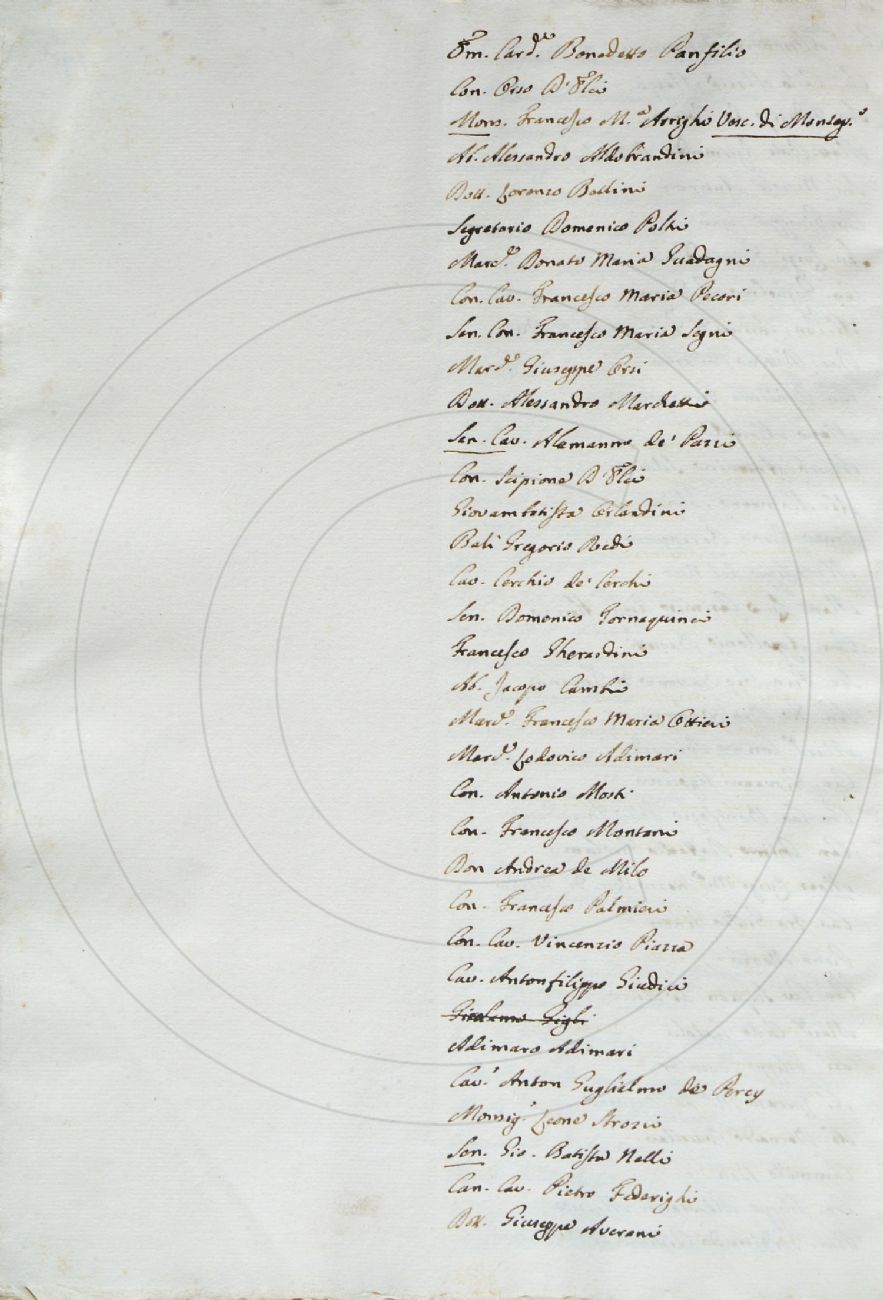 Em. Card.e Benedetto Panfilio
Con. Orso D'Elci
Mons. Francesco M.a Arrighi Vesc. di Montep.o
Ab. Alessandro Aldobrandini
Dott. Lorenzo Bellini
Segretario Domenico Poltri
March.e Donato Maria Guadagni
Con. Cav. Francesco Maria Pecori
Sen. Con. Francesco Maria Segni
March.e Giuseppe Orsi
Dott. Alessandro Marchetti
Sen. Cav. Alamanno de' Pazzi
Con. Scipione D'Elci
Giovambatista Orlandini
Balì Gregorio Redi
Cav. Cerchio de' Cerchi
Sen. Domenico Tornaquinci
Francesco Gherardini
Ab. Jacopo Cambi
March.e Francesco Maria Ottieri
March.e Lodovico Adimari
Con. Antonio Mosti
Con. Francesco Montani
Don Andrea de Milo
Con. Francesco Palmieri
Con. Cav. Vincenzio Piazza
Cav. Antonfilippo Giudici
Girolamo Gigli
Adimaro Adimari
Cav.r Anton Guglielmo de Percy
Monsig.r Leone Strozzi
Sen. Gio. Batista Nelli
Can. Cav. Pietro Federighi
Dot. Giuseppe Averani